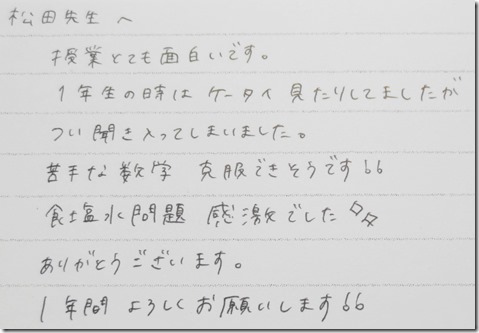 松田先生へ
授業とても面白いです。
1年生の時は ケータイ 見たりしてましたが
つい聞き入ってしまいました。
苦手な数学 克服できそうです66
食塩水問題 感激でした
ありがとうございます。
1年間 よろしくお願いします66